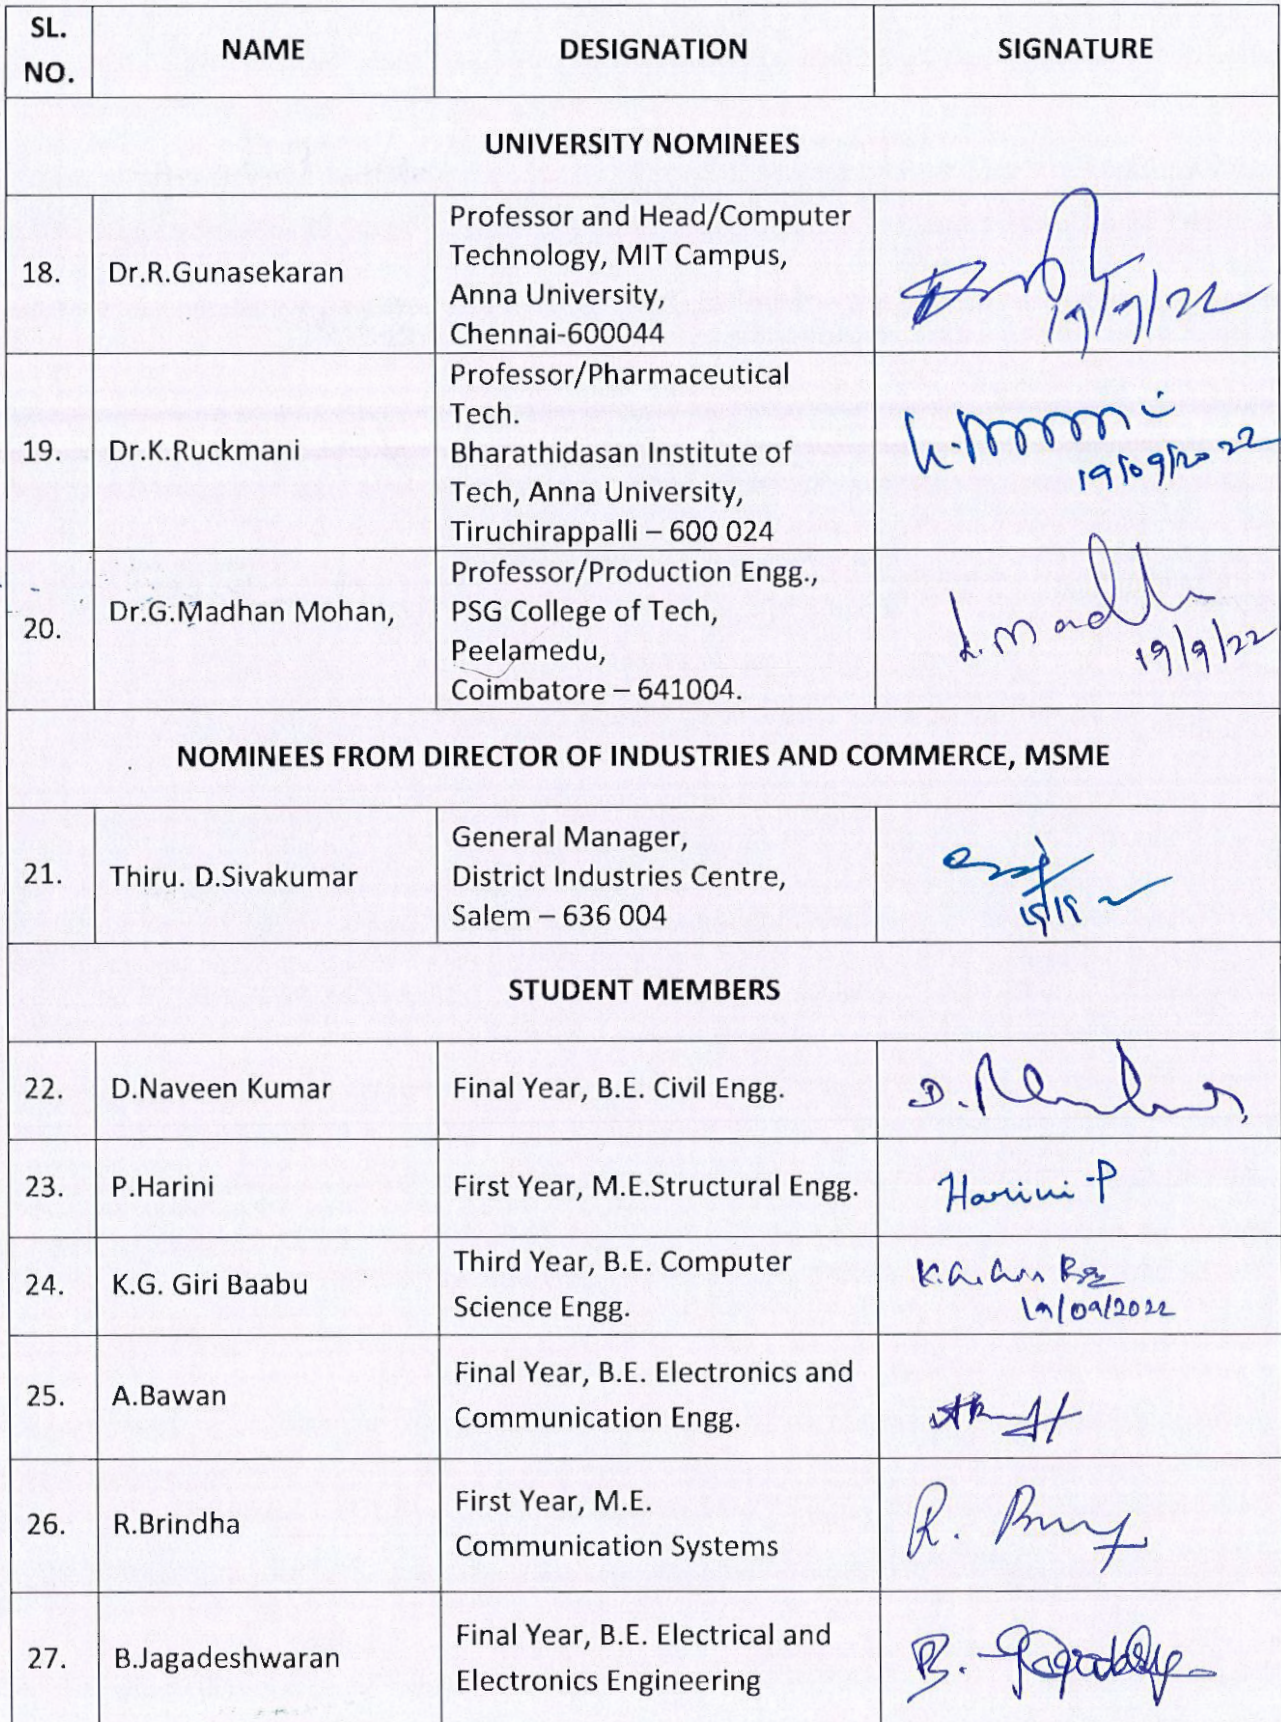 SL.
NO.
NAME
DESIGNATION
SIGNATURE
UNIVERSITY NOMINEES
18.
Dr.R.Gunasekaran
Professor and Head/Computer
Technology, MIT Campus,
Anna University,
Chennai-600044
19/9/22
19.
Dr.K.Ruckmani
Professor/Pharmaceutical
Tech.
Bharathidasan Institute of
Tech, Anna University,
Tiruchirappalli – 600 024
19/09/2022
20.
Dr.G.Madhan Mohan,
Professor/Production Engg.,
PSG College of Tech,
Peelamedu,
Coimbatore – 641004.
19/9/22
NOMINEES FROM DIRECTOR OF INDUSTRIES AND COMMERCE, MSME
21.
Thiru. D.Sivakumar
General Manager,
District Industries Centre,
Salem – 636 004
STUDENT MEMBERS
22.
D.Naveen Kumar
Final Year, B.E. Civil Engg.
D.
23.
P.Harini
First Year, M.E.Structural Engg.
Harini-P
24.
K.G. Giri Baabu
Third Year, B.E. Computer
Science Engg.
19/09/2022
25.
A.Bawan
Final Year, B.E. Electronics and
Communication Engg.
26.
R.Brindha
First Year, M.E.
Communication Systems
R.
27.
B.Jagadeshwaran
Final Year, B.E. Electrical and
Electronics Engineering
B.